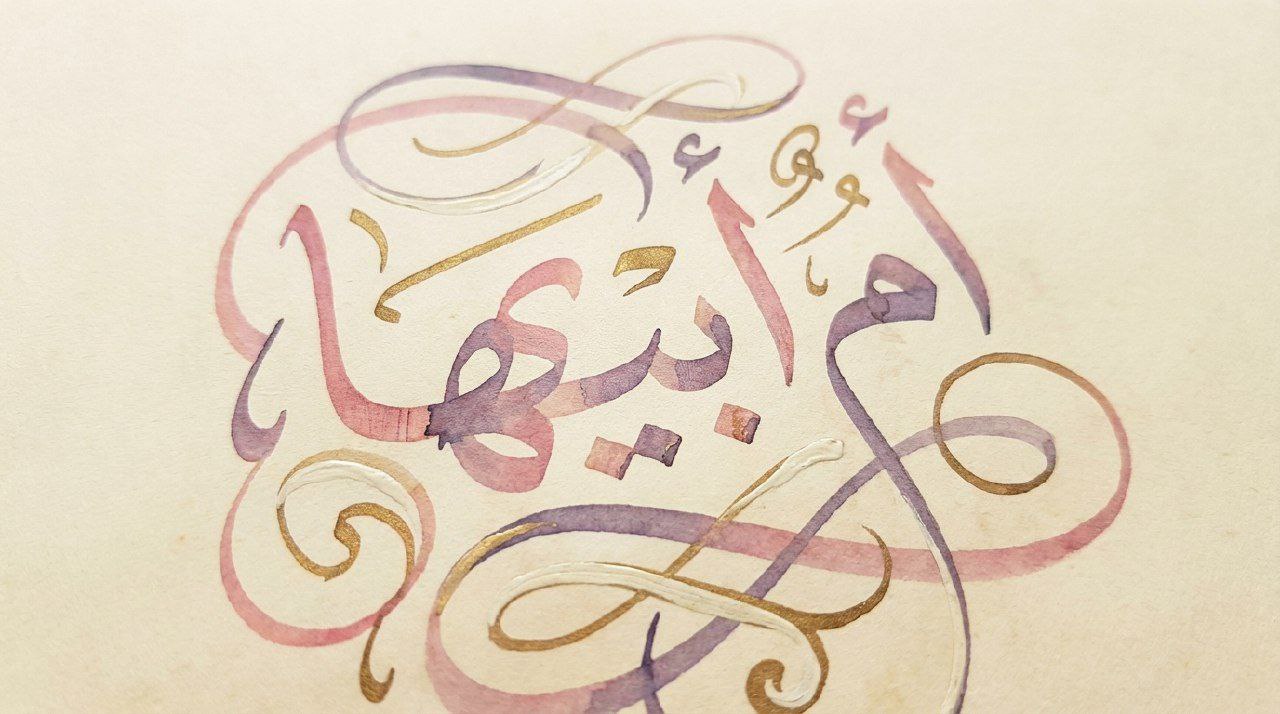 أم أبيها